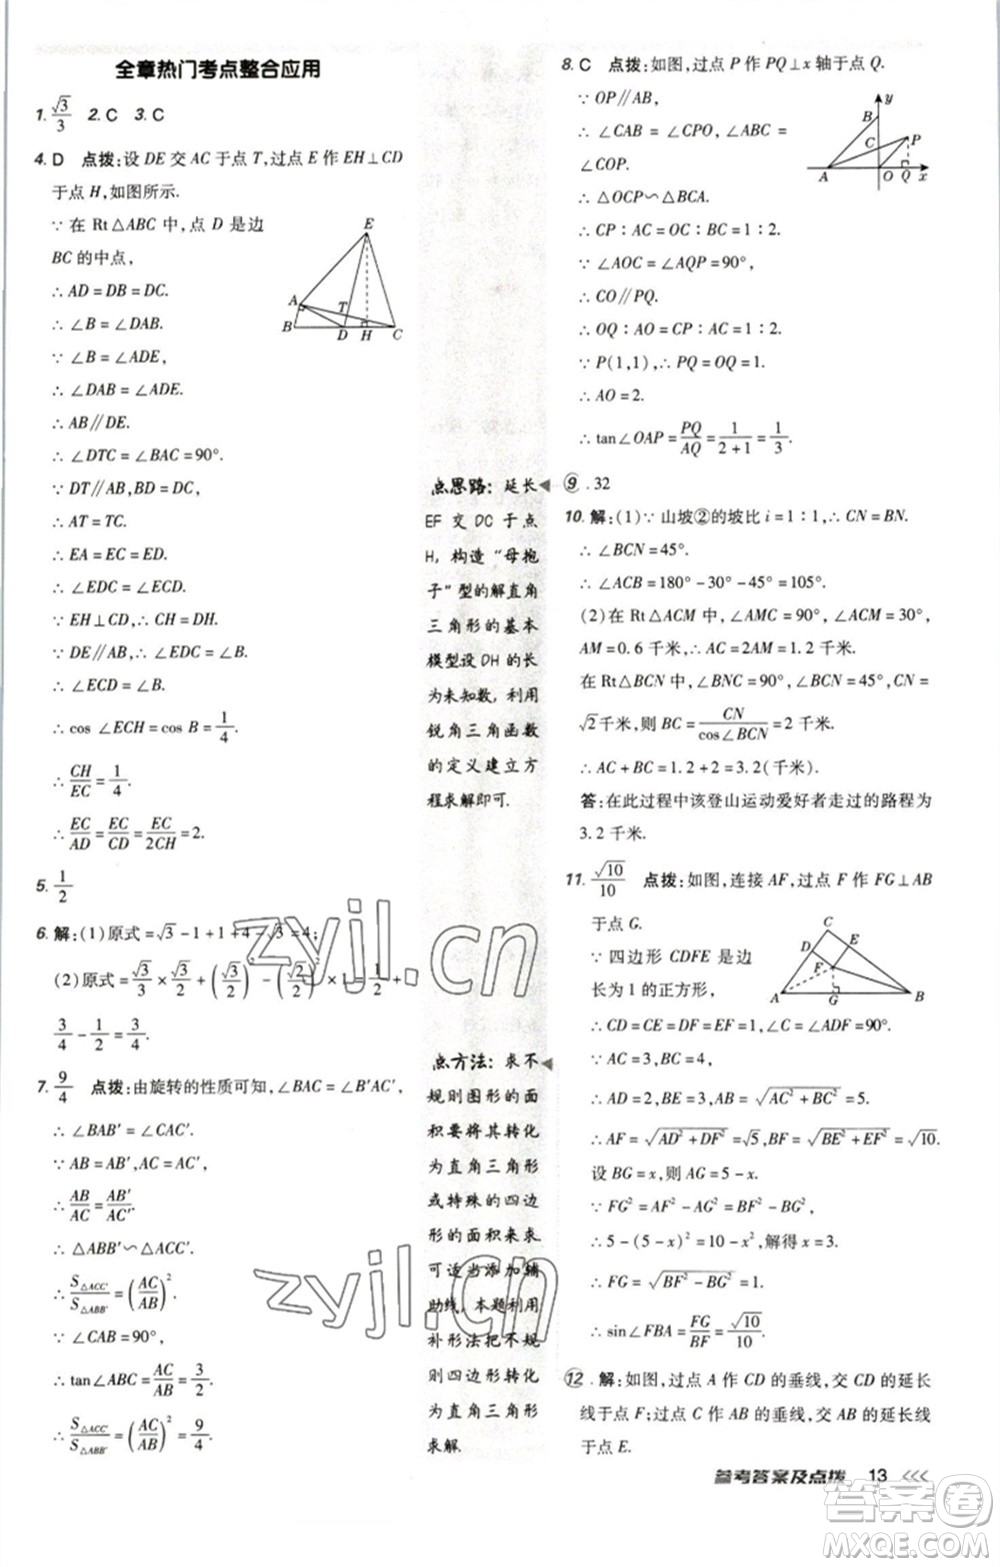 全章热门考点整合应用
1. √3/3  2. C  3. C
4. D  点拨：设 DE 交 AC 于点 T，过点 E 作 EH⊥CD
于点 H，如图所示.
∵ 在 Rt△ABC 中，点 D 是边
BC 的中点，
∴ AD = DB = DC.
∴ ∠B = ∠DAB.
∵ ∠B = ∠ADE，
∴ ∠DAB = ∠ADE.
∴ AB∥DE.
∴ ∠DTC = ∠BAC = 90°.
∵ DT∥AB，BD = DC，
∴ AT = TC.
∴ EA = EC = ED.
∴ ∠EDC = ∠ECD.
∵ EH⊥CD，∴ CH = DH.
∵ DE∥AB，∴ ∠EDC = ∠B.
∴ ∠ECD = ∠B.
∴ cos ∠ECH = cos B = 1/4.
∴ CH/EC = 1/4.
∴ EC/AD = EC/CD = EC/2CH = 2.
E
A
T
B
D
H
C
5. 1/2
6. 解：(1)原式 = √3 - 1 + 1 + 4 - √3 = 4；
(2)原式 = √3/3 × √3/2 + (√3/2)² - (√2/2)² × 1 = 1/2 +
3/4 - 1/2 = 3/4.
7. 9/4  点拨：由旋转的性质可知，∠BAC = ∠B′AC′，
∴ ∠BAB′ = ∠CAC′.
∵ AB = AB′，AC = AC′，
∴ AB/AC = AB′/AC′.
∴ △ABB′∽△ACC′.
∴ S△ACC′/S△ABB′ = (AC/AB)².
∵ ∠CAB = 90°，
∴ tan∠ABC = AC/AB = 3/2.
∴ S△ACC′/S△ABB′ = (AC/AB)² = 9/4.
点思路：延长
EF 交 DC 于点
H，构造“母抱
子”型的解直角
三角形的基本
模型设 DH 的长
为未知数，利用
锐角三角函数
的定义建立方
程求解即可.
点方法：求不
规则图形的面
积要将其转化
为直角三角形
或特殊的四边
形的面积来求，
可适当添加辅
助线，本题利用
补形法把不规
则四边形转化
为直角三角形
求解.
8. C  点拨：如图，过点 P 作 PQ⊥x 轴于点 Q.
∵ OP∥AB，
∴ ∠CAB = ∠CPO，∠ABC =
∠COP.
∴ △OCP∽△BCA.
∴ CP∶AC = OC∶BC = 1∶2.
∵ ∠AOC = ∠AQP = 90°，
∴ CO∥PQ.
∴ OQ∶AO = CP∶AC = 1∶2.
∵ P(1,1)，∴ PQ = OQ = 1.
∴ AO = 2.
∴ tan∠OAP = PQ/AQ = 1/(2+1) = 1/3.
y
B
C
P
A
O
Q
x
9. 32
10. 解：(1)∵ 山坡②的坡比 i = 1∶1，∴ CN = BN.
∴ ∠BCN = 45°.
∴ ∠ACB = 180° - 30° - 45° = 105°.
(2)在 Rt△ACM 中，∠AMC = 90°，∠ACM = 30°，
AM = 0.6 千米，∴ AC = 2AM = 1.2 千米.
在 Rt△BCN 中，∠BNC = 90°，∠BCN = 45°，CN =
√2千米，则 BC = CN/cos∠BCN = 2 千米，
∴ AC + BC = 1.2 + 2 = 3.2(千米).
答：在此过程中该登山运动爱好者走过的路程为
3.2 千米.
11. √10/10  点拨：如图，连接 AF，过点 F 作 FG⊥AB
于点 G.
∵ 四边形 CDFE 是边
长为 1 的正方形，
∴ CD = CE = DF = EF = 1，∠C = ∠ADF = 90°.
∵ AC = 3，BC = 4，
∴ AD = 2，BE = 3，AB = √(AC² + BC²) = 5.
∴ AF = √(AD² + DF²) = √5，BF = √(BE² + EF²) = √10.
设 BG = x，则 AG = 5 - x，
∵ FG² = AF² - AG² = BF² - BG²，
∴ 5 - (5 - x)² = 10 - x²，解得 x = 3.
∴ FG = √(BF² - BG²) = 1.
∴ sin∠FBA = FG/BF = √10/10.
C
D
E
F
A
G
B
12. 解：如图，过点 A 作 CD 的垂线，交 CD 的延长
线于点 F；过点 C 作 AB 的垂线，交 AB 的延长线
于点 E.
参考答案及点拨 13
zyjl.cn
zyjl.cn
答案圈
MXQE.COM